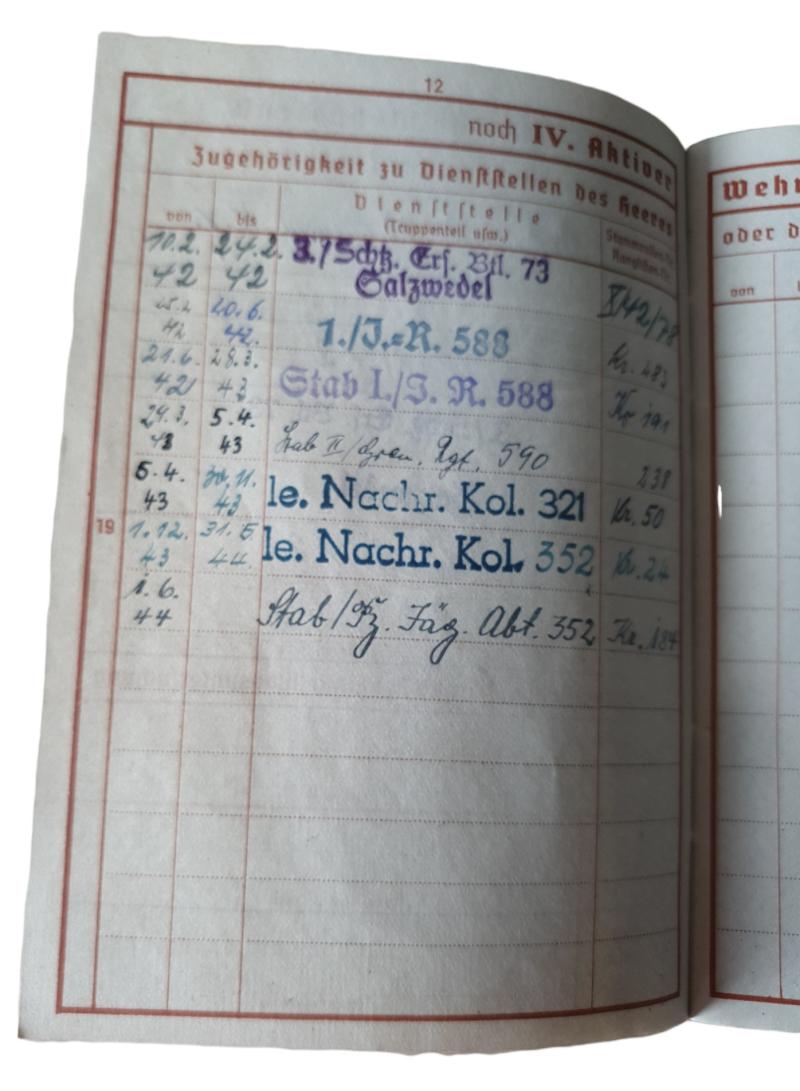 12
noch IV. Aktiver
Zugehörigkeit zu Dienststellen des Heeres
von bis Dienststelle
(Truppenteil usw.)
10.2. 24.2. 3./Schtz. Ers. Btl. 73
42 42 Salzwedel
25.2. 20.6. 1./J.=R. 588
42 42. Kr. 483
21.6. 28.3. Stab I./J. R. 588
42 43 Kr 191
29.3. 5.4. Stab II/Gren. Rgt. 590
43 43 238
5.4. 30.11. le. Nachr. Kol. 321
43 43 Kr. 50
19 1.12. 31.5. le. Nachr. Kol. 352
43 44. Kr. 24
1.6. Stab/Pz. Jäg. Abt. 352 Kr. 184
44
Wehr
oder d
von